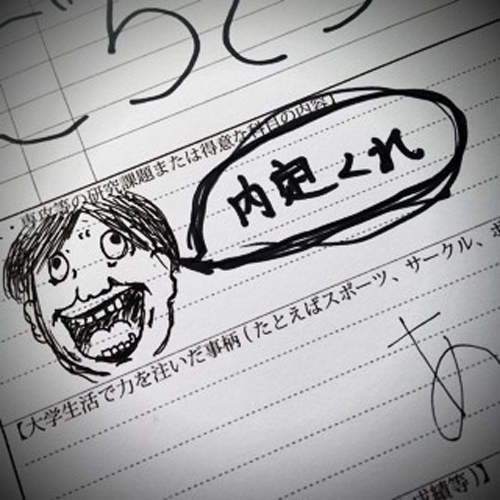 専攻等の研究課題または得意な科目の内容】
内定くれ
【大学生活で力を注いだ事柄(たとえばスポーツ、サークル、ボ
あ
等)】